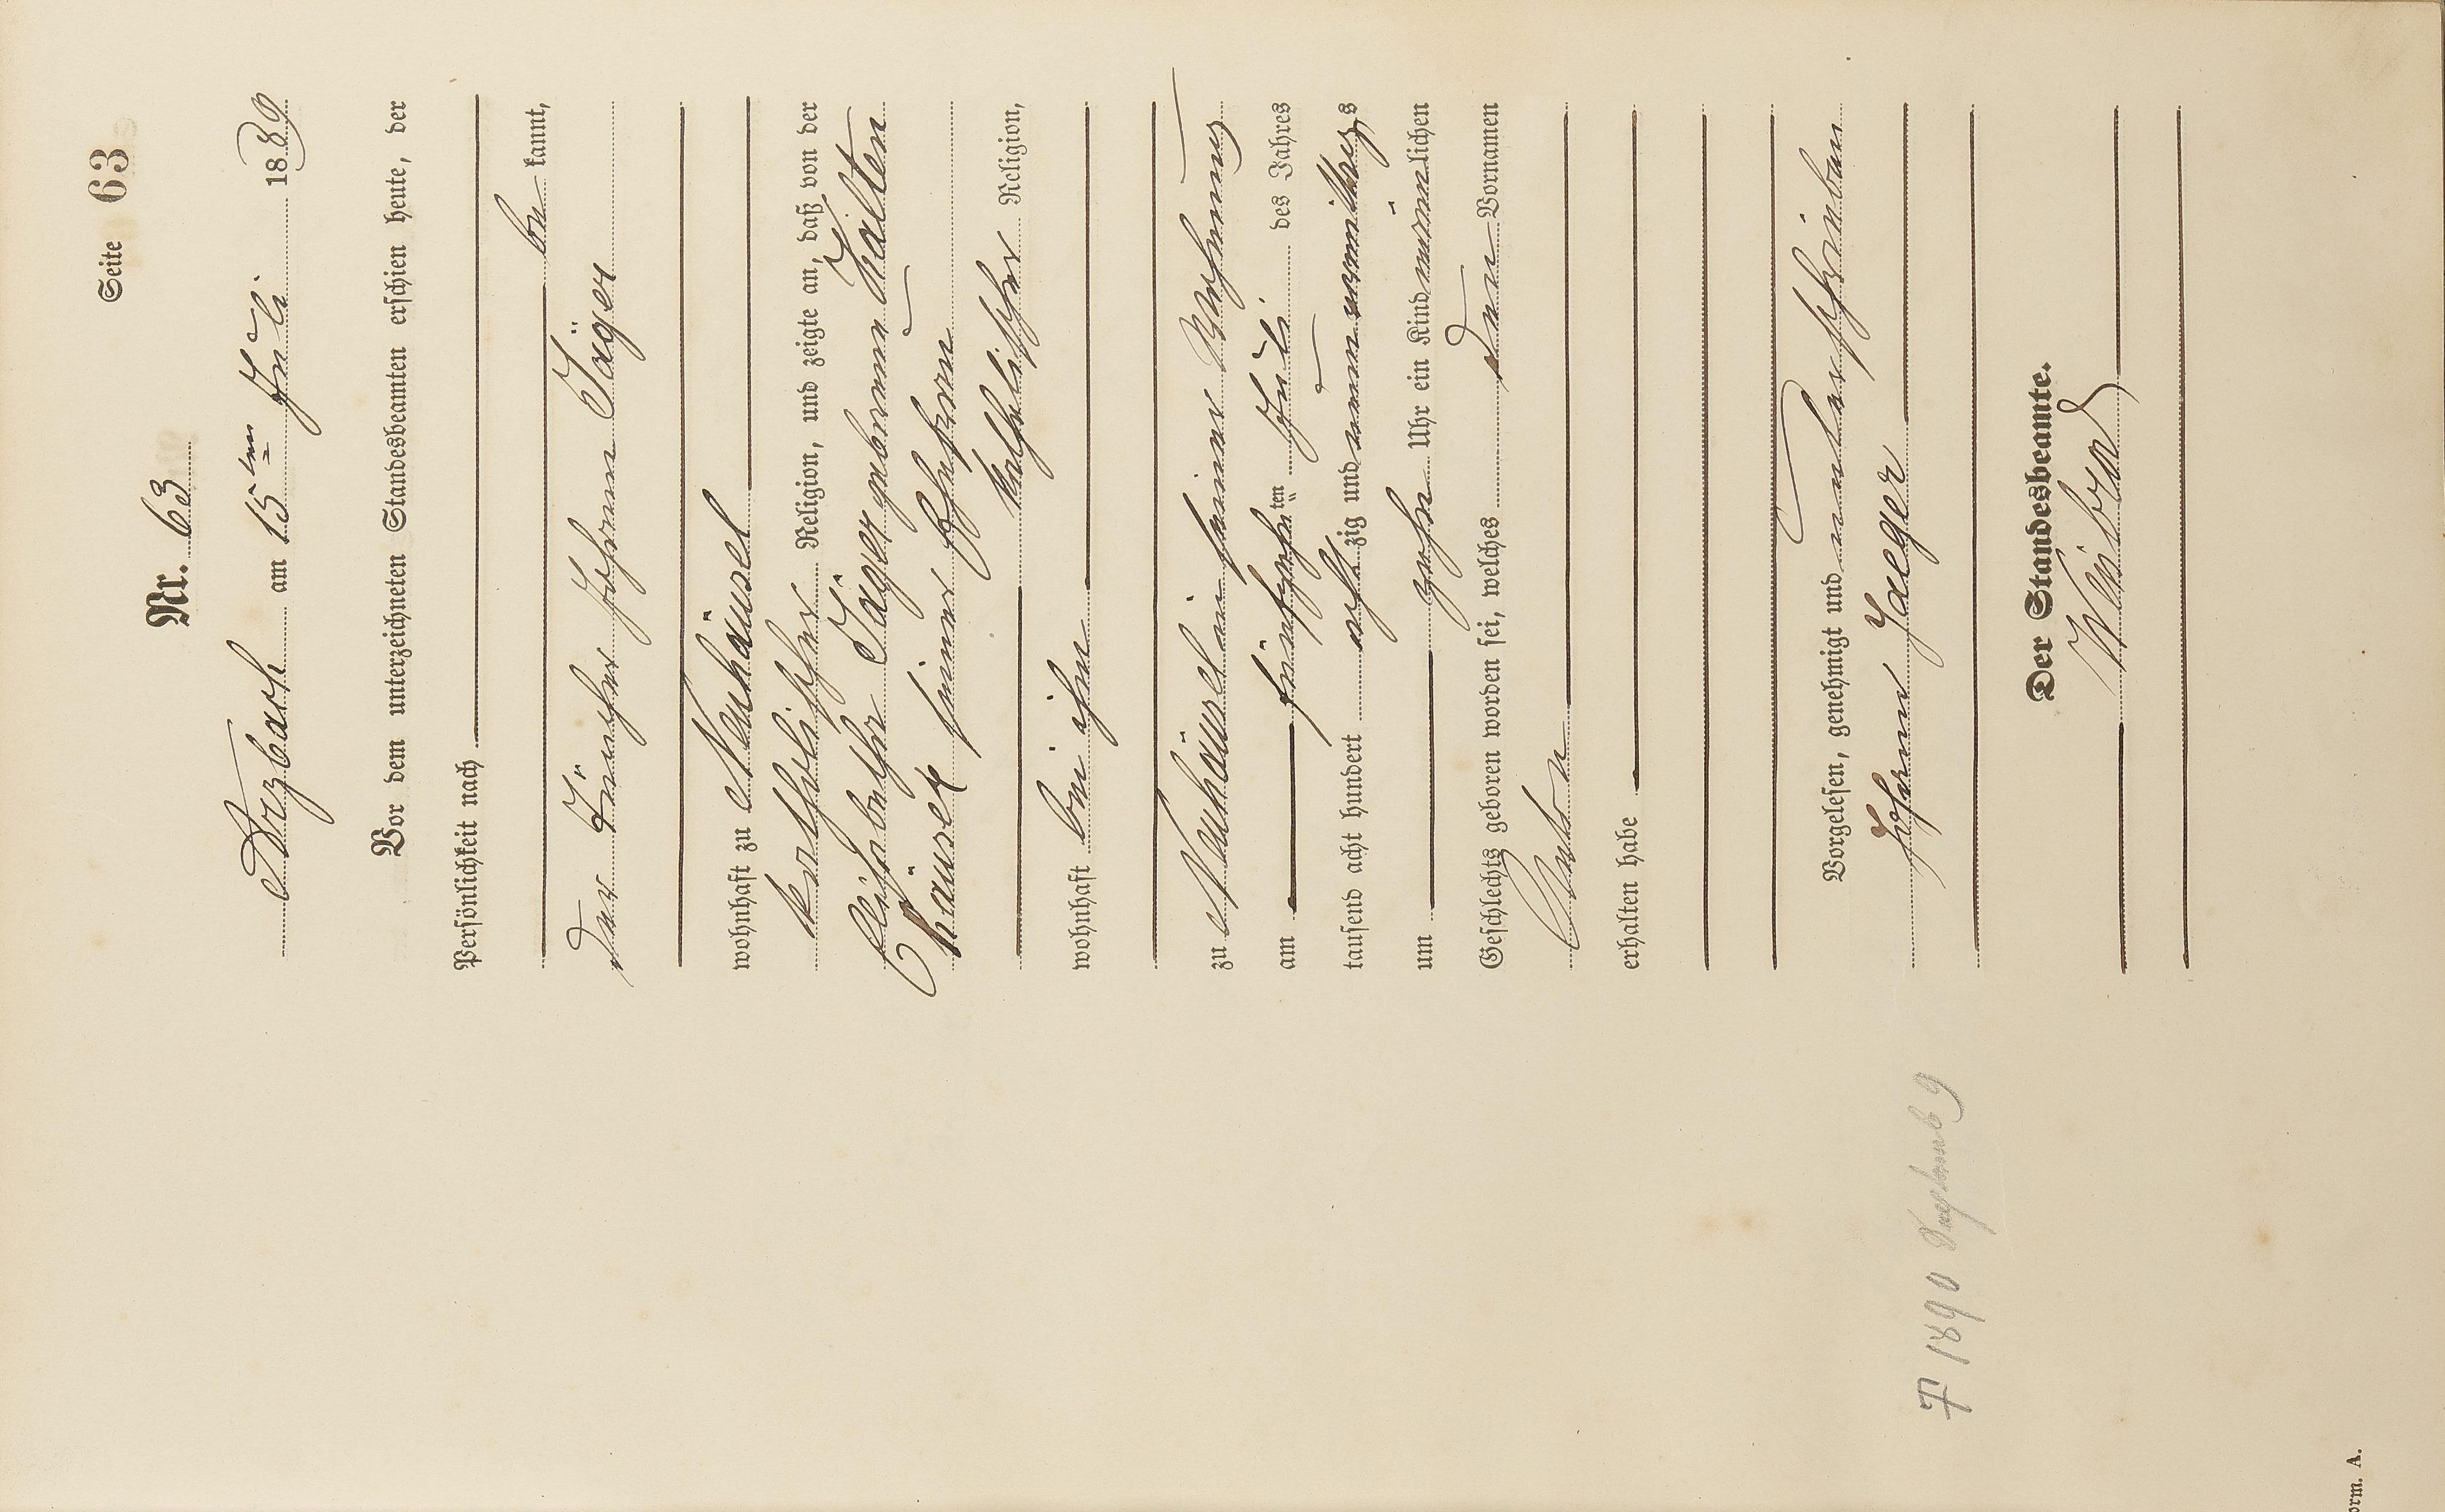 Seite 63
Nr. 63
Arzbach am 15ten Juli 1889
Vor dem unterzeichneten Standesbeamten erschien heute, der
Persönlichkeit nach
be kannt,
der Tüncher Johann Jäger
wohnhaft zu Neuhäusel
katholischer Religion, und zeigte an, daß von der
Elisabetha Jäger geborenen Kalten
häuser seiner Ehefrau
katholischer Religion,
wohnhaft bei ihm
zu Neuhäusel in seiner Wohnung
am fünfzehnten Juli des Jahres
tausend acht hundert acht zig und neun vormittags
um zehn Uhr ein Kind männlichen
Geschlechts geboren worden sei, welches den Vornamen
Anton
erhalten habe
Vorgelesen, genehmigt und unterschrieben
Johann Jaeger
Der Standesbeamte.
1890 Septemb 9
orm. A.